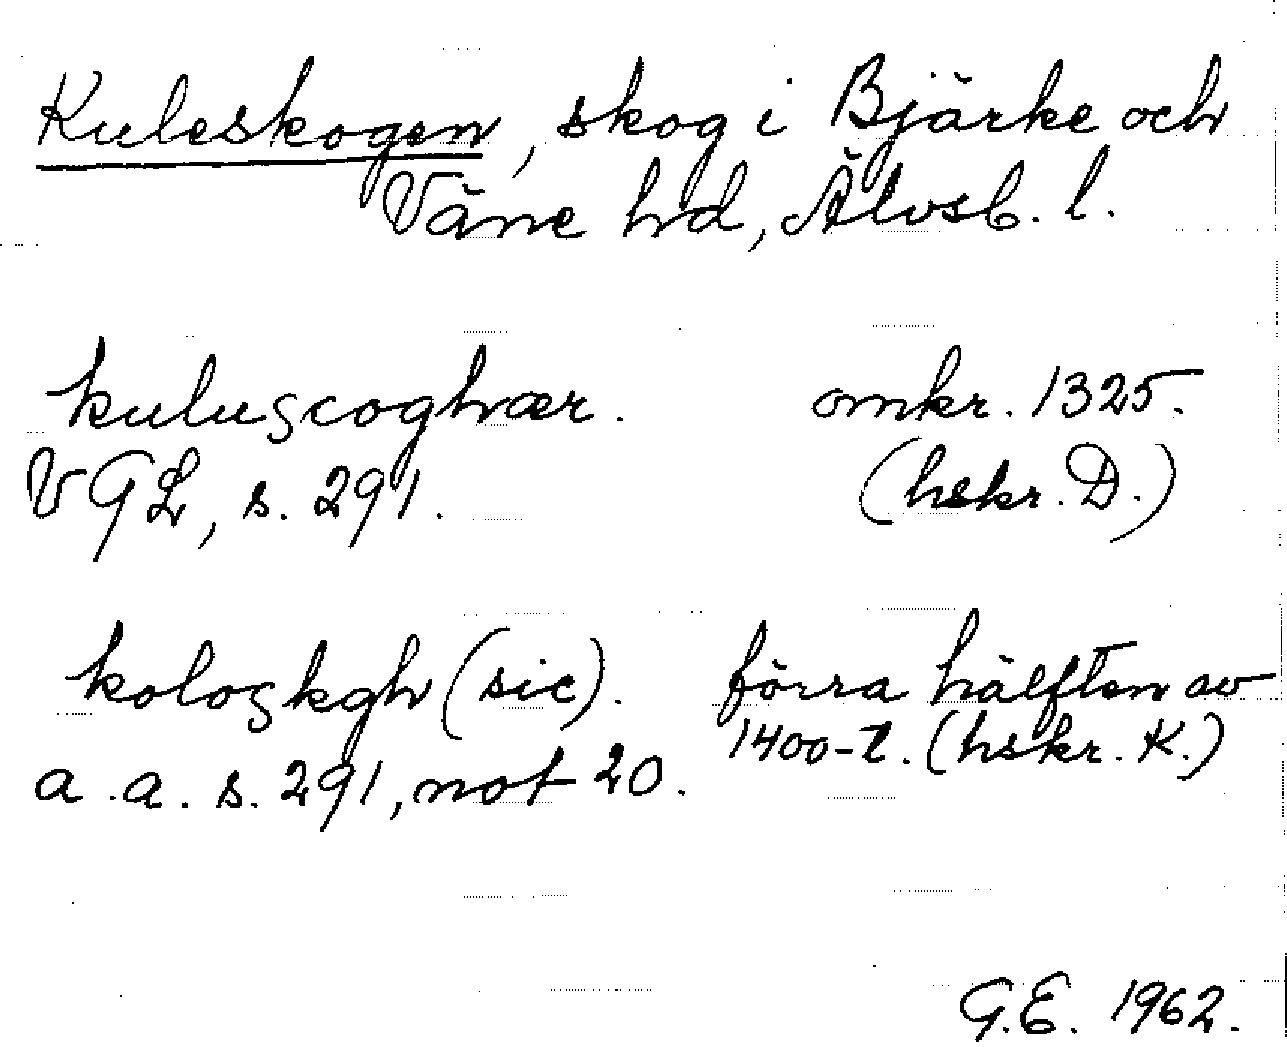 Kuleskogen, skog i Bjärke och
Väne hd, Älvsb. l.
kuluscoghær. omkr. 1325.
VGL, s. 291. (hskr. D.)
koloskgh (sic). förra hälften av
1400-t. (hskr. K.)
a.a. s. 291, not 20.
G.E. 1962.